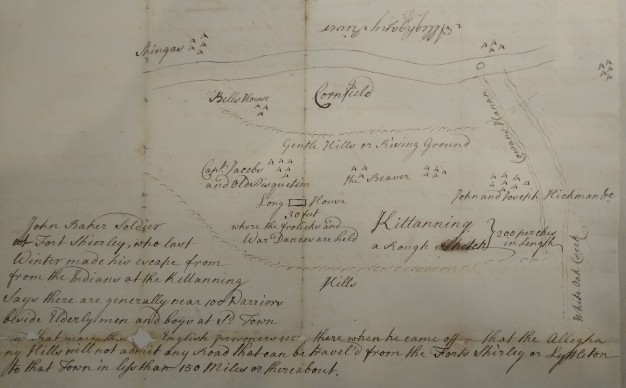 Alleghany River
Shingas
Bells House
Cornfield
Gentle Hills or Rising Ground
Capt. Jacobs
and Old Pisquetum
the Beaver
John and Joseph Hickman &c
Long House
30 feet
where the frolicks and
War Dances are held
Kittanning
a Rough Sketch
300 perches
in Length
Hills
White Oak Creek
John Baker Soldier
at Fort Sheerley, who last
Winter made his escape from
from the Indians at the Kittanning
Says there are generally near 100 Warriors
beside Elderly men and boys at Sd. Town
that more than English prisoners there when he came off that the Allegha
ny Hills will not admit any Road that can be travel'd from the Forts Shirley or Lyttleton
to that Town in less than 150 Miles or thereabout.